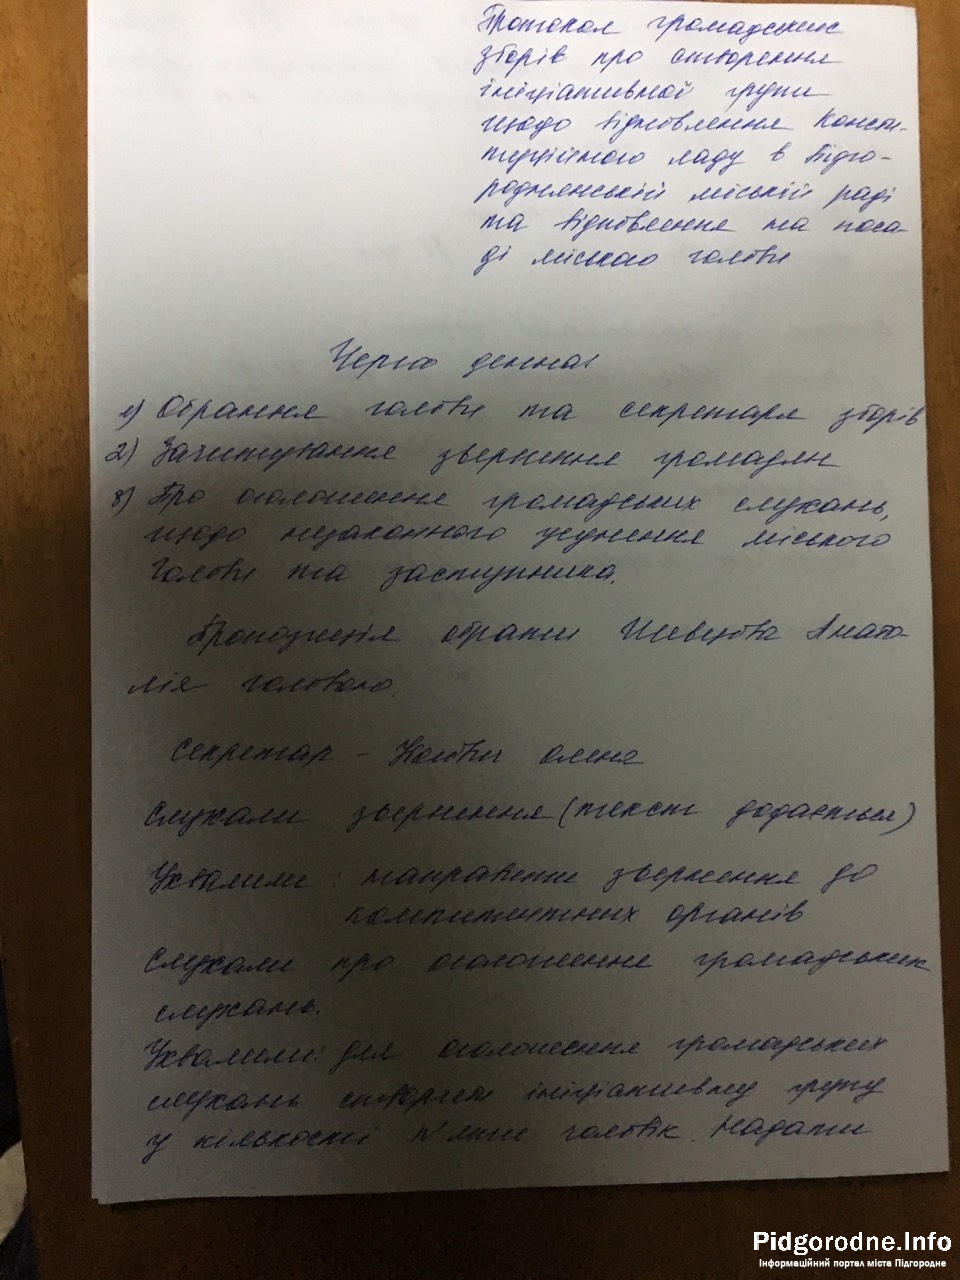 Протокол громадських
зборів про створення
ініціативної групи
щодо відновлення Консти-
туційного ладу в Підго-
роднянській міській раді
та відновлення на поса-
ді міського голови
Черга денна:
1) Обрання голови та секретаря зборів
2) Зачитування звернення громадян
3) Про оголошення громадських слухань,
щодо незаконного усунення міського
голови та заступника.
Пропозиція обрати Шевцова Анато-
лія головою.
Секретар - Олена
Слухали звернення (текст додається)
Ухвалили: направити звернення до
компитентних органів
Слухали про оголошення громадських
слухань.
Ухвалили: для оголошення громадських
слухань створити ініціативну групу
у кількості п'яти чоловік. Надати
Pidgorodne.Info
Інформаційний портал міста Підгородне